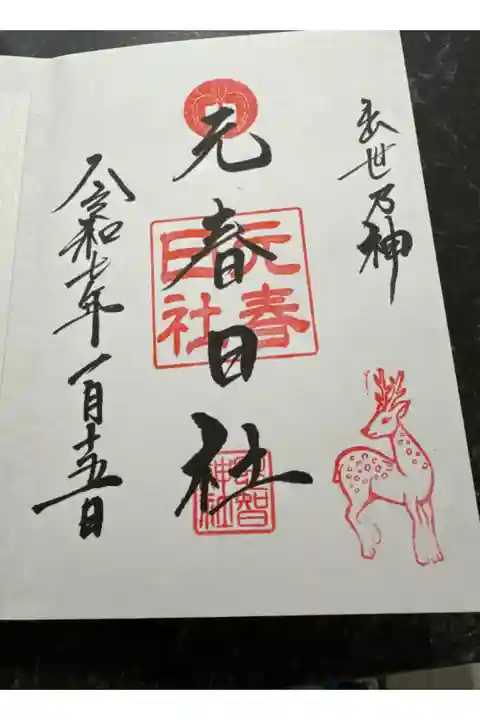 出世乃神
元春日社
元春
日社
恩智
神社
令和七年一月十五日